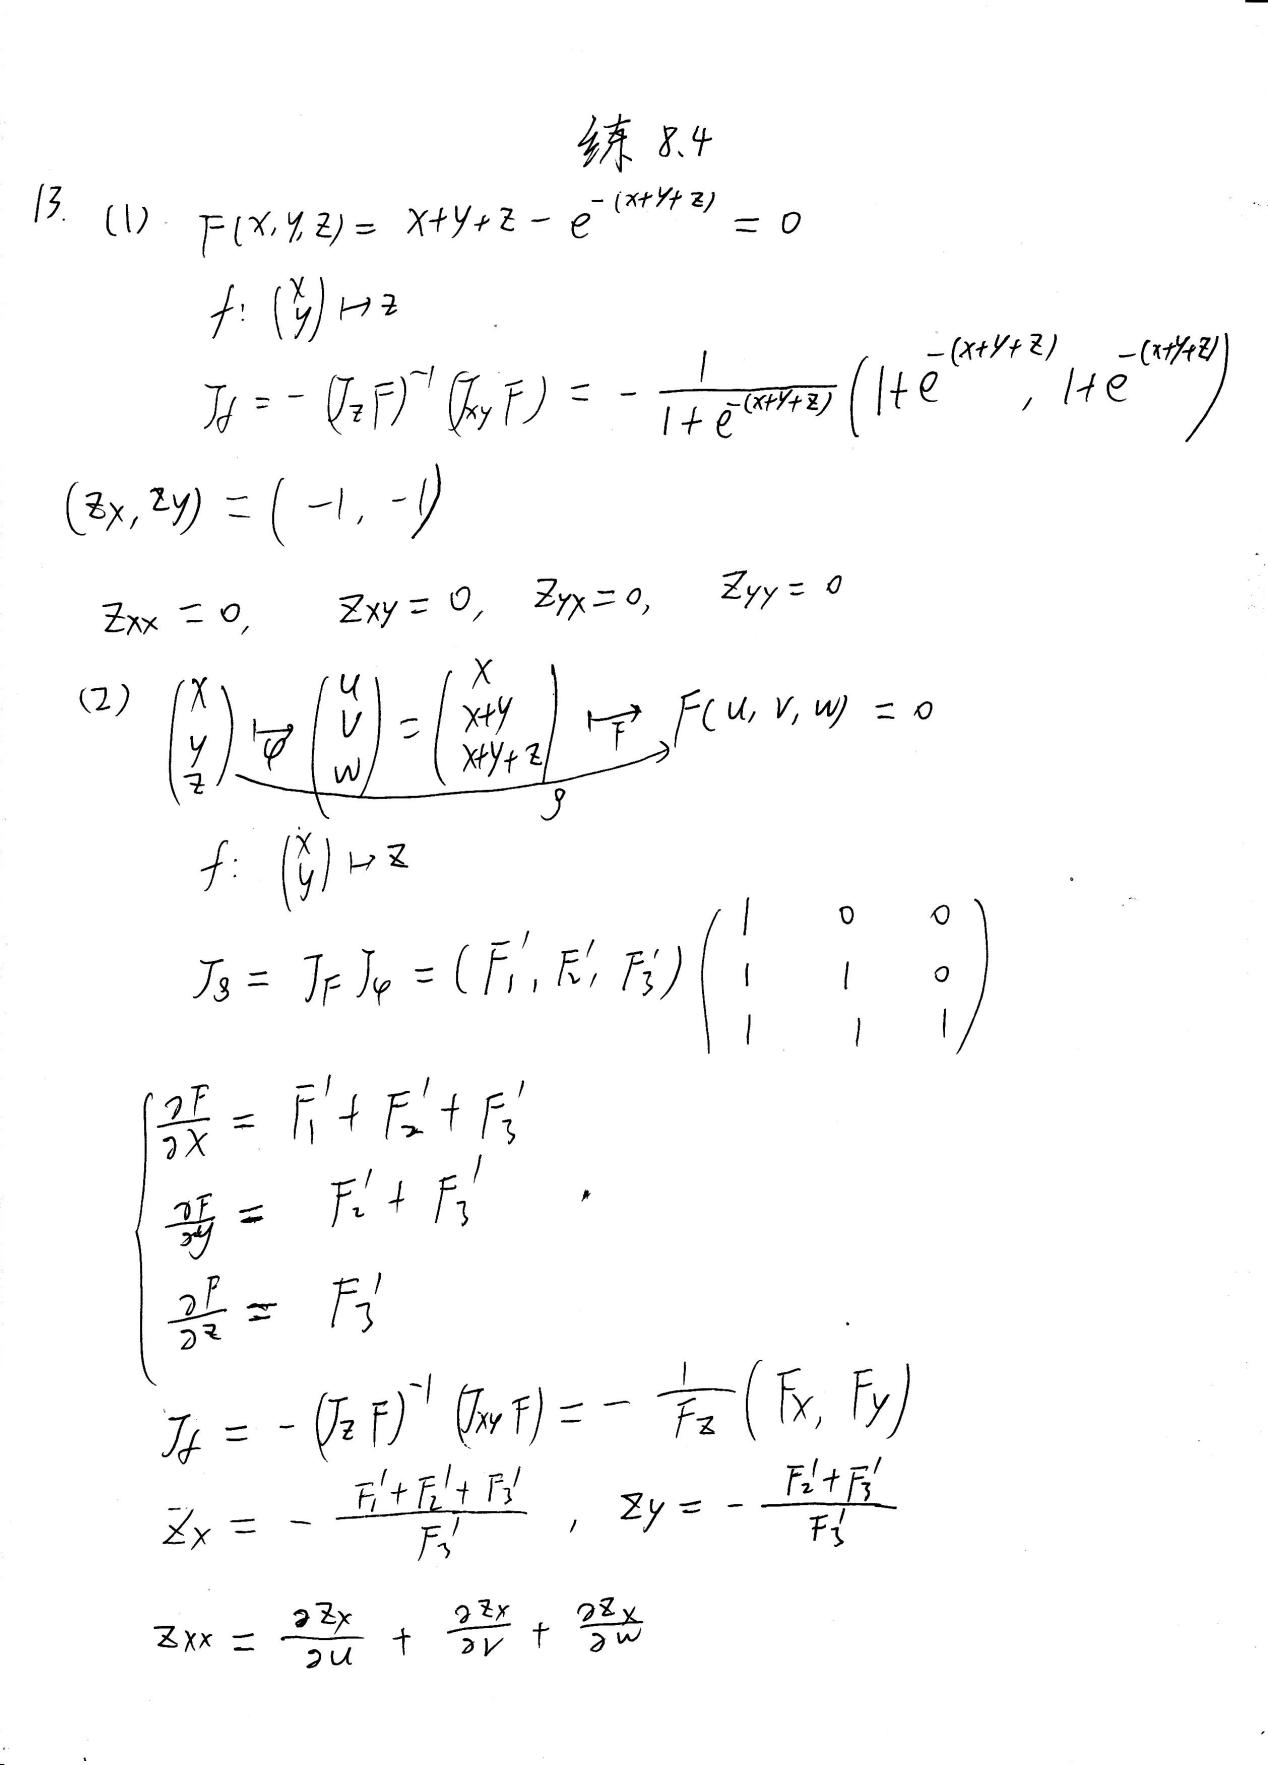 练 8.4
13. (1). F(x,y,z) = x+y+z - e^{-(x+y+z)} = 0
f: (x y) ↦ z
J_f = - (J_z F)^{-1} (J_{xy} F) = - 1/(1+e^{-(x+y+z)}) (1+e^{-(x+y+z)}, 1+e^{-(x+y+z)})
(z_x, z_y) = (-1, -1)
z_{xx} = 0, z_{xy} = 0, z_{yx} = 0, z_{yy} = 0
(2) (x y z) ↦_φ (u v w) = (x x+y x+y+z) ↦_F F(u, v, w) = 0
g
f: (x y) ↦ z
J_g = J_F J_φ = (F_1', F_2', F_3') (1 0 0
1 1 0
1 1 1)
∂F/∂x = F_1' + F_2' + F_3'
∂F/∂y = F_2' + F_3'
∂F/∂z = F_3'
J_f = - (J_z F)^{-1} (J_{xy} F) = - 1/F_z (F_x, F_y)
z_x = - (F_1'+F_2'+F_3')/F_3' , z_y = - (F_2'+F_3')/F_3'
z_{xx} = ∂z_x/∂u + ∂z_x/∂v + ∂z_x/∂w